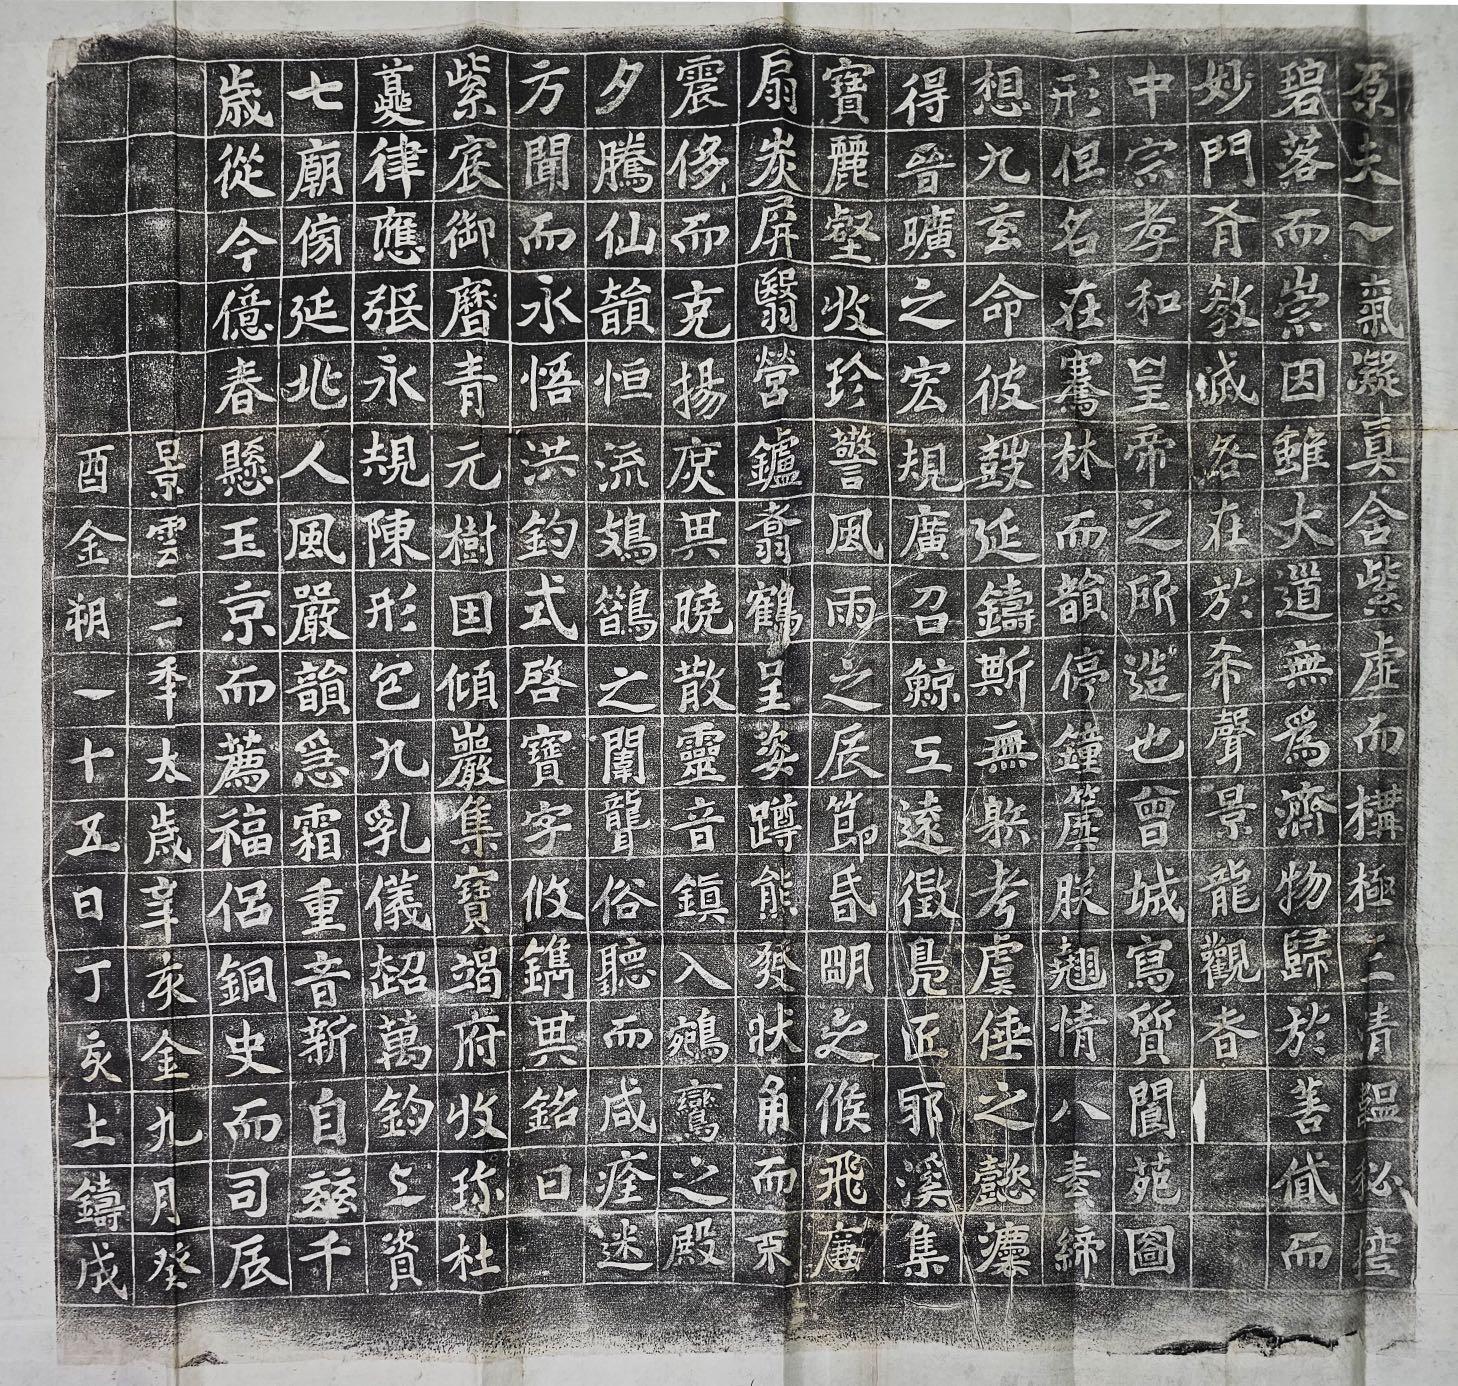 原夫一氣凝眞含紫虛而構極三清韞秘控
碧落而崇因雖大道無爲濟物歸於善貸而
妙門有教誡咎在於希聲景龍觀者
中宗孝和皇帝之所造也曾城寫質閬苑圖
形但名在騫林而韻停鐘虡朕翹情八素締
想九玄命彼鼓延鑄斯無䠶考虞倕之懿灋
得晉曠之宏規廣召鯨工遠徵鳧匠耶溪集
寶麗壑收珍警風雨之辰節昏明之候飛廉
扇炭屏翳營鑪翥鶴呈姿蹲熊發狀角而不
震侈而克揚庶其曉散靈音鎮入鵷鸞之殿
夕騰仙韻恒流鳷鵲之闈聾俗聽而咸痊迷
方聞而永悟洪鈞式啓寶字攸鐫其銘曰
紫宸御曆青元樹因傾巖集寶竭府收珎杜
夔律應張永規陳形包九乳儀超萬鈞上資
七廟傍延兆人風嚴韻急霜重音新自兹千
歲從今億春懸玉京而薦福侶銅史而司辰
景雲二年太歲辛亥金九月癸
酉金朔一十五日丁亥土鑄成